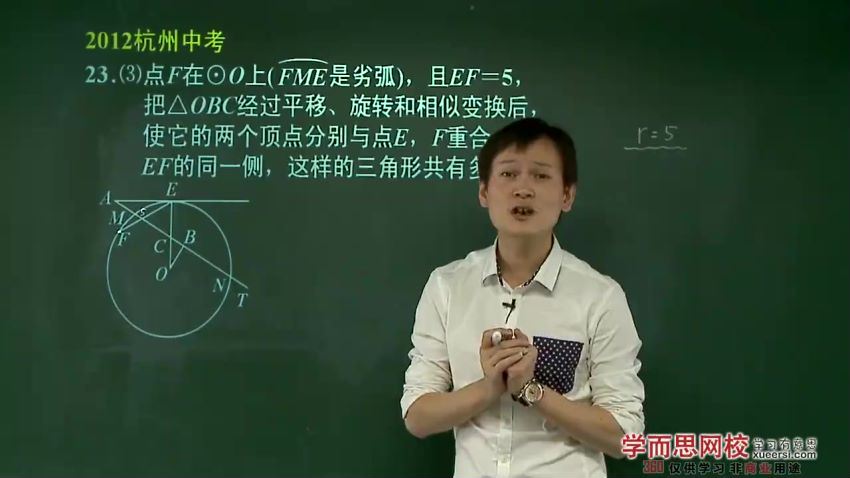 2012杭州中考
23.⑶点F在⊙O上(FME是劣弧)，且EF＝5，
把△OBC经过平移、旋转和相似变换后，
使它的两个顶点分别与点E，F重合
EF的同一侧，这样的三角形共有多
r=5
A
E
M
5
F
C
B
O
N
T
学而思网校
学习有意思
xueersi.com
360 仅供学习 非商业用途